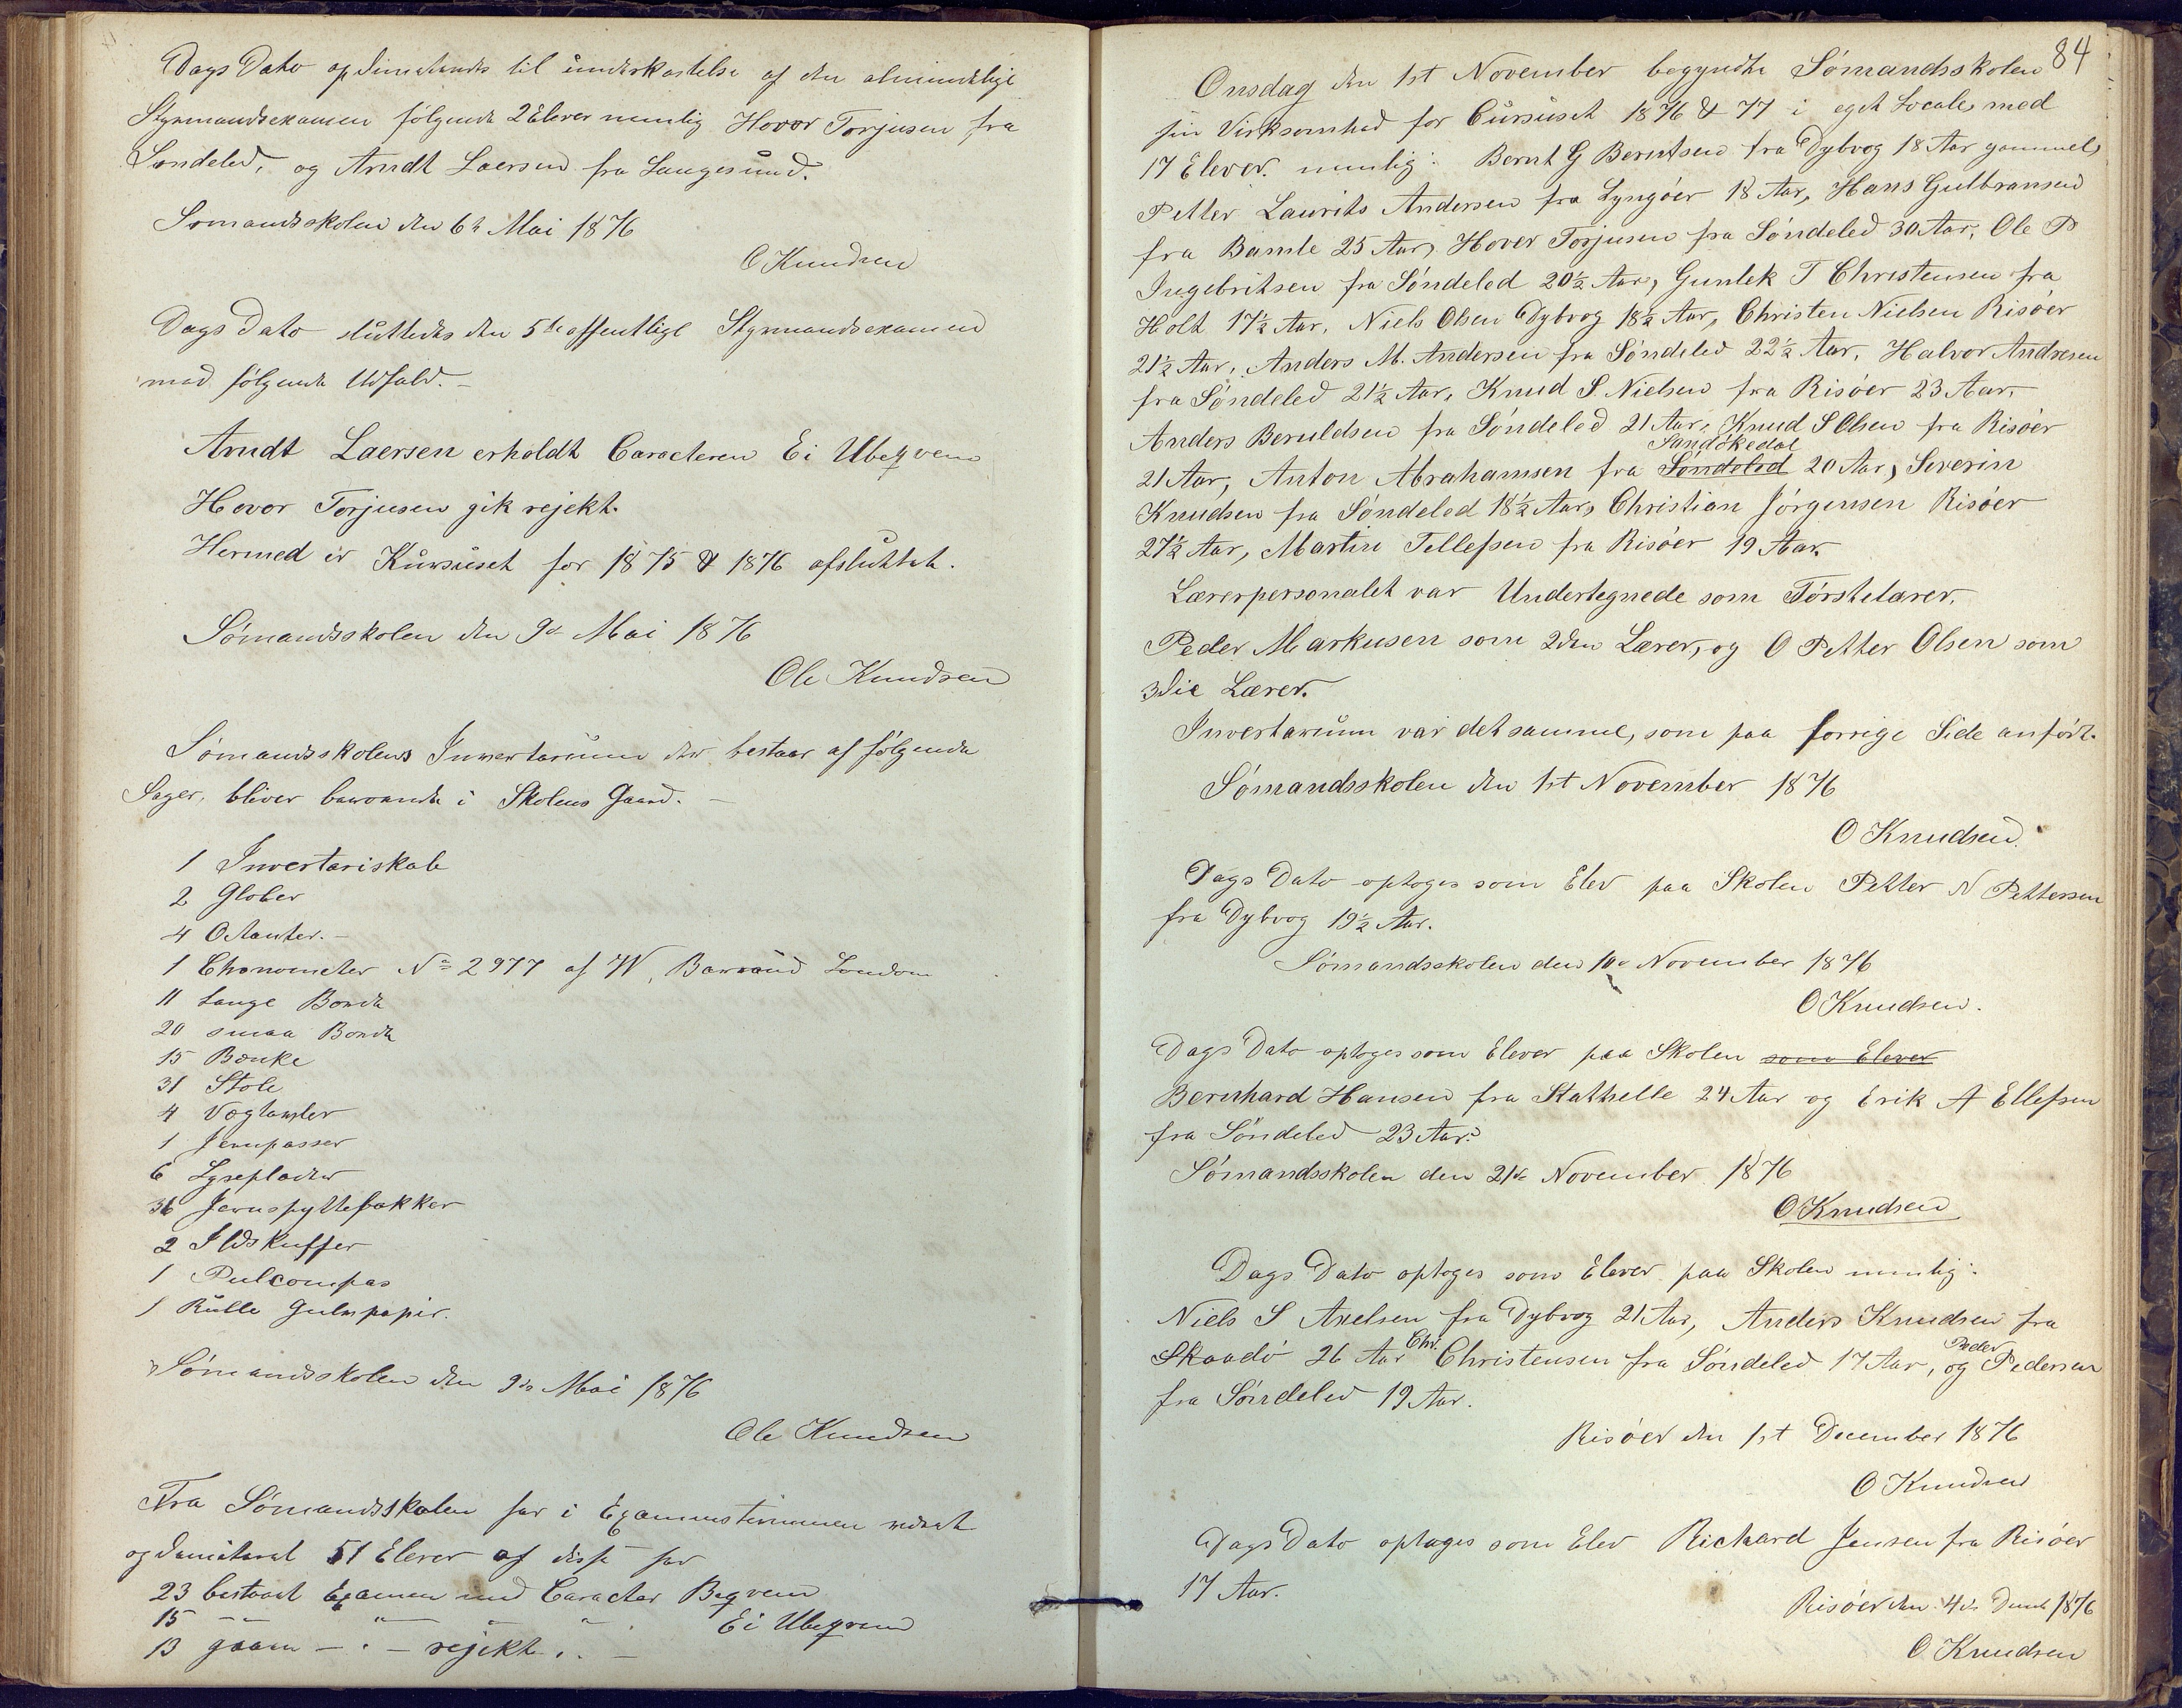 Dags Dato opdimiteredes til underkastelse af den almindelige
Styrmandsexamen følgende 2 Elever nemlig Hovor Torjusen fra
Søndeled, og Arndt Laersen fra Langesund.
Sømandsskolen den 6te Mai 1876
O Knudsen
Dags Dato sluttedes den 5te offentlige Styrmandsexamen
med følgende Udfald. –
Arndt Laersen erholdt Caracteren Ei Ubeqvem
Hovor Torjusen gik rejekt.
Hermed er Kursuset for 1875 & 1876 afsluttet.
Sømandsskolen den 9de Mai 1876
Ole Knudsen
Sømandsskolens Inventarium der bestaar af følgende
Sager, bliver beroende i Skolens Gaard. –
1 Inventariskab
2 Glober
4 Octanter. –
1 Chonometer No 2977 af W. Barraud London
11 Lange Borde
20 smaa Borde
15 Bænke
31 Stole
4 Væglamper
1 Jernpasser
6 Lyseplader
36 Jernspyttebakker
2 Ildskuffer
1 Pulcompas
1 Rulle Gulvpapir.
Sømandsskolen den 9de Mai 1876
Ole Knudsen
Fra Sømandsskolen har i Examensterminen været
opdimiteret 51 Elever af disse har
23 bestaaet Examen med Caracter Beqvem
15 –"– " " " Ei Ubeqvem
13 gaaen – " – rejekt. –
84
Onsdag den 1st November begyndte Sømandsskolen
sin Virksomhed for Cursuset 1876 & 77 i eget Locale med
17 Elever. nemlig: Bernt G Berntsen fra Dybvog 18 Aar gammel,
Petter Laurits Andersen fra Lyngøer 18 Aar, Hans Gulbransen
fra Bamle 25 Aar, Hover Torjusen fra Søndeled 30 Aar, Ole P
Ingebritsen fra Søndeled 20½ Aar, Gunlek T Christensen fra
Holt 17½ Aar, Niels Olsen Dybvog 18½ Aar, Christen Nielsen Risøer
21½ Aar, Anders M. Andersen fra Søndeled 22½ Aar, Halvor Andresen
fra Søndeled 21½ Aar, Knud S. Nielsen fra Risøer 23 Aar,
Anders Beruldsen fra Søndeled 21 Aar, Knud S Olsen fra Risøer
Sandøkedal
21 Aar, Anton Abrahamsen fra Søndeled 20 Aar, Severin
Knudsen fra Søndeled 18½ Aar, Christian Jørgensen Risøer
27½ Aar, Martin Tellefsen fra Risøer 19 Aar.
Lærerpersonalet var Undertegnede som Førstelærer,
Peder Markusen som 2den Lærer, og O Petter Olsen som
3die Lærer.
Inventarium var det samme, som paa forrige Side anført.
Sømandsskolen den 1st November 1876
O Knudsen.
Dags Dato optoges som Elev paa Skolen Petter N Pettersen
fra Dybvog 19½ Aar.
Sømandsskolen den 10de November 1876
O Knudsen.
Dags Dato optoges som Elever paa Skolen som Elever
Bernhard Hansen fra Stathelle 24 Aar og Erik A Ellefsen
fra Søndeled 23 Aar.
Sømandsskolen den 21de November 1876
O Knudsen
Dags Dato optoges som Elever paa Skolen nemlig:
Niels S Axelsen fra Dybvog 21 Aar, Anders Knudsen fra
Chr. Peder
Skaadø 26 Aar Christensen fra Søndeled 17 Aar, og Pedersen
fra Søndeled 19 Aar.
Risøer den 1st December 1876
O Knudsen
Dags Dato optoges som Elev Richard Jensen fra Risøer
17 Aar.
Risøer den 4de Decmb 1876
O Knudsen